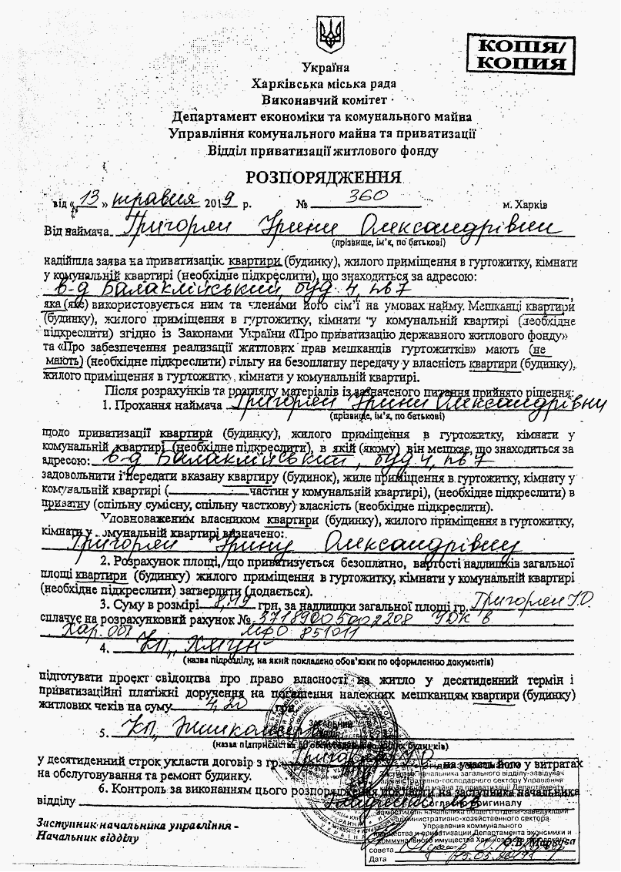 КОПІЯ/
КОПИЯ
Україна
Харківська міська рада
Виконавчий комітет
Департамент економіки та комунального майна
Управління комунального майна та приватизації
Відділ приватизації житлового фонду
РОЗПОРЯДЖЕННЯ
від « 13 » травня 2019 р. № 360 м. Харків
Від наймача Григорян Ірини Олександрівни
(прізвище, ім'я, по батькові)
надійшла заява на приватизацію квартири (будинку), жилого приміщення в гуртожитку, кімнати
у комунальній квартирі (необхідне підкреслити), що знаходиться за адресою:
б-д Балаклійський буд 4, кв 7
яка (яке) використовується ним та членами його сім'ї на умовах найму. Мешканці квартири
(будинку), жилого приміщення в гуртожитку, кімнати у комунальній квартирі (необхідне
підкреслити) згідно із Законами України «Про приватизацію державного житлового фонду»
та «Про забезпечення реалізації житлових прав мешканців гуртожитків» мають (не
мають) (необхідне підкреслити) пільгу на безоплатну передачу у власність квартири (будинку),
жилого приміщення в гуртожитку, кімнати у комунальній квартирі.
Після розрахунків та розгляду матеріалів із зазначеного питання прийнято рішення:
1. Прохання наймача Григорян Ірини Олександрівни
(прізвище, ім'я, по батькові)
щодо приватизації квартири (будинку), жилого приміщення в гуртожитку, кімнати у
комунальній квартирі (необхідне підкреслити), в якій (якому) він мешкає, що знаходиться за
адресою: б-д Балаклійський, буд 4, кв 7
задовольнити і передати вказану квартиру (будинок), жиле приміщення в гуртожитку, кімнату у
комунальній квартирі ( частин у комунальній квартирі), (необхідне підкреслити) в
приватну (спільну сумісну, спільну часткову) власність (необхідне підкреслити).
Уповноваженим власником квартири (будинку), жилого приміщення в гуртожитку,
кімнати у комунальній квартирі визначено:
Григорян Ірину Олександрівну
2. Розрахунок площі, що приватизується безоплатно, вартості надлишків загальної
площі квартири (будинку) жилого приміщення в гуртожитку, кімнати у комунальній квартирі
(необхідне підкреслити) затвердити (додається).
3. Суму в розмірі грн, за надлишки загальної площі гр. Григорян І.О.
сплачує на розрахунковий рахунок № 37189005002208 УДК в
Хар. обл МФО 851011
4. КП
(назва підрозділу, на який покладено обов'язки по оформленню документів)
підготувати проєкт свідоцтва про право власності на житло у десятиденний термін і
приватизаційні платіжні доручення на погашення належних мешканцям квартири (будинку)
житлових чеків на суму 4,20 грн
5. КП „Жилкомсервіс"
(назва підприємства по обслуговуванню будинків)
у десятиденний строк укласти договір з гр. на участь його у витратах
на обслуговування та ремонт будинку.
6. Контроль за виконанням цього розпорядження покласти на заступника начальника
відділу
Заступник начальника управління -
Начальник відділу
совета
Дата